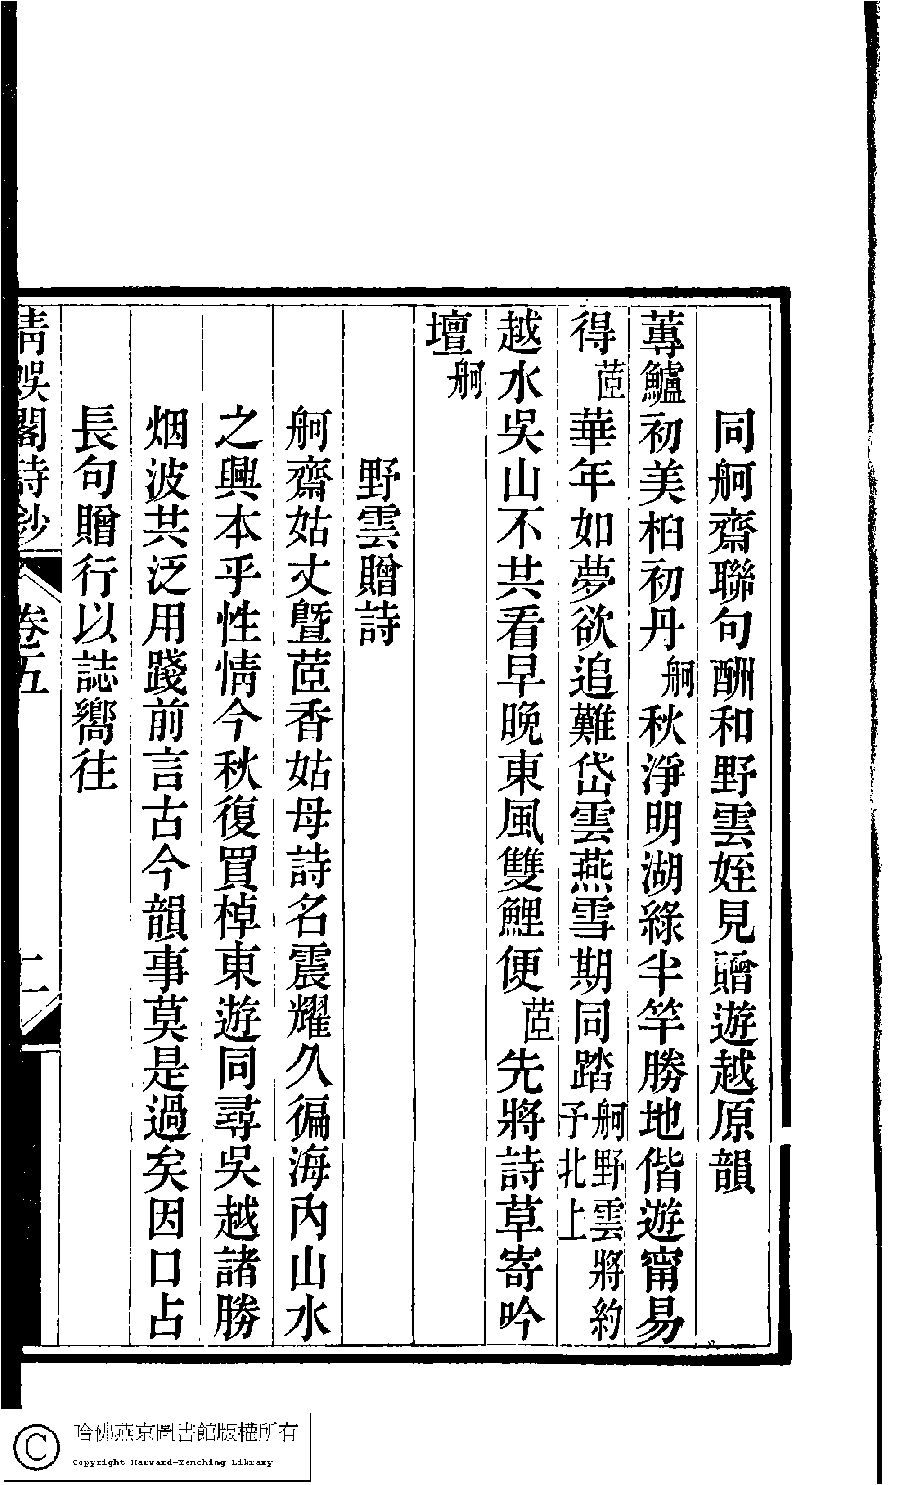 同舸齋聯句酬和野雲姪見贈遊越原韻
蓴鱸初美桕初丹舸秋淨明湖綠半竿勝地偕遊甯易
得茝華年如夢欲追難岱雲燕雪期同踏舸野雲將約予北上
越水吳山不共看早晚東風雙鯉便茝先將詩草寄吟
壇舸
野雲贈詩
舸齋姑丈暨茝香姑母詩名震耀久徧海內山水
之興本乎性情今秋復買棹東遊同尋吳越諸勝
烟波共泛用踐前言古今韻事莫是過矣因口占
長句贈行以誌嚮往
清娛閣詩鈔 卷五 二
哈佛燕京圖書館版權所有
Copyright Harvard-Yenching Library